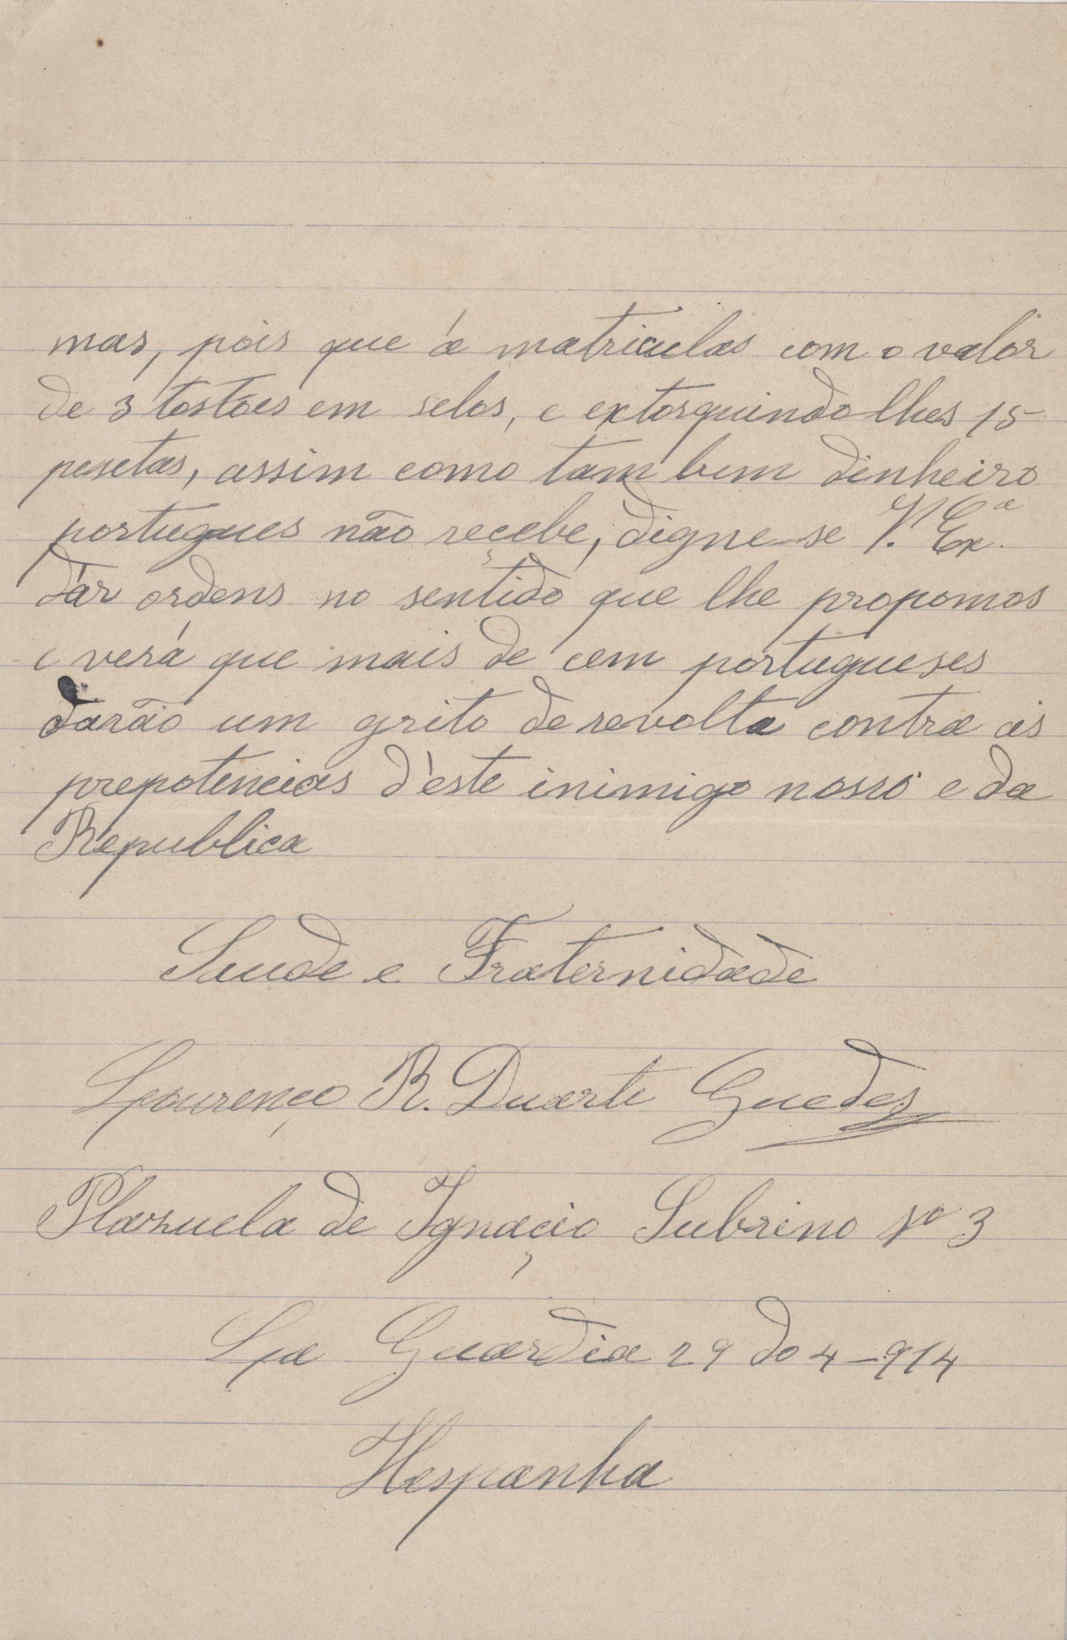 mas, pois que á matriculas com o valor
de 3 tostões em selos, e extorquindo lhes 15
pesetas, assim como tam bem dinheiro
portugues não reçebe, digne-se V. Exª.
dár ordens no sentido que lhe propomos
e verá que mais de cem portugueses
darão um grito de revolta contra as
prepotencias d'este inimigo nosso e da
Republica
Saude e Fraternidade
Lourenço R. Duarte Guedes
Plazuela de Ignaçio Subrino Nº 3
La Guardia 29 do 4-914
Hespanha